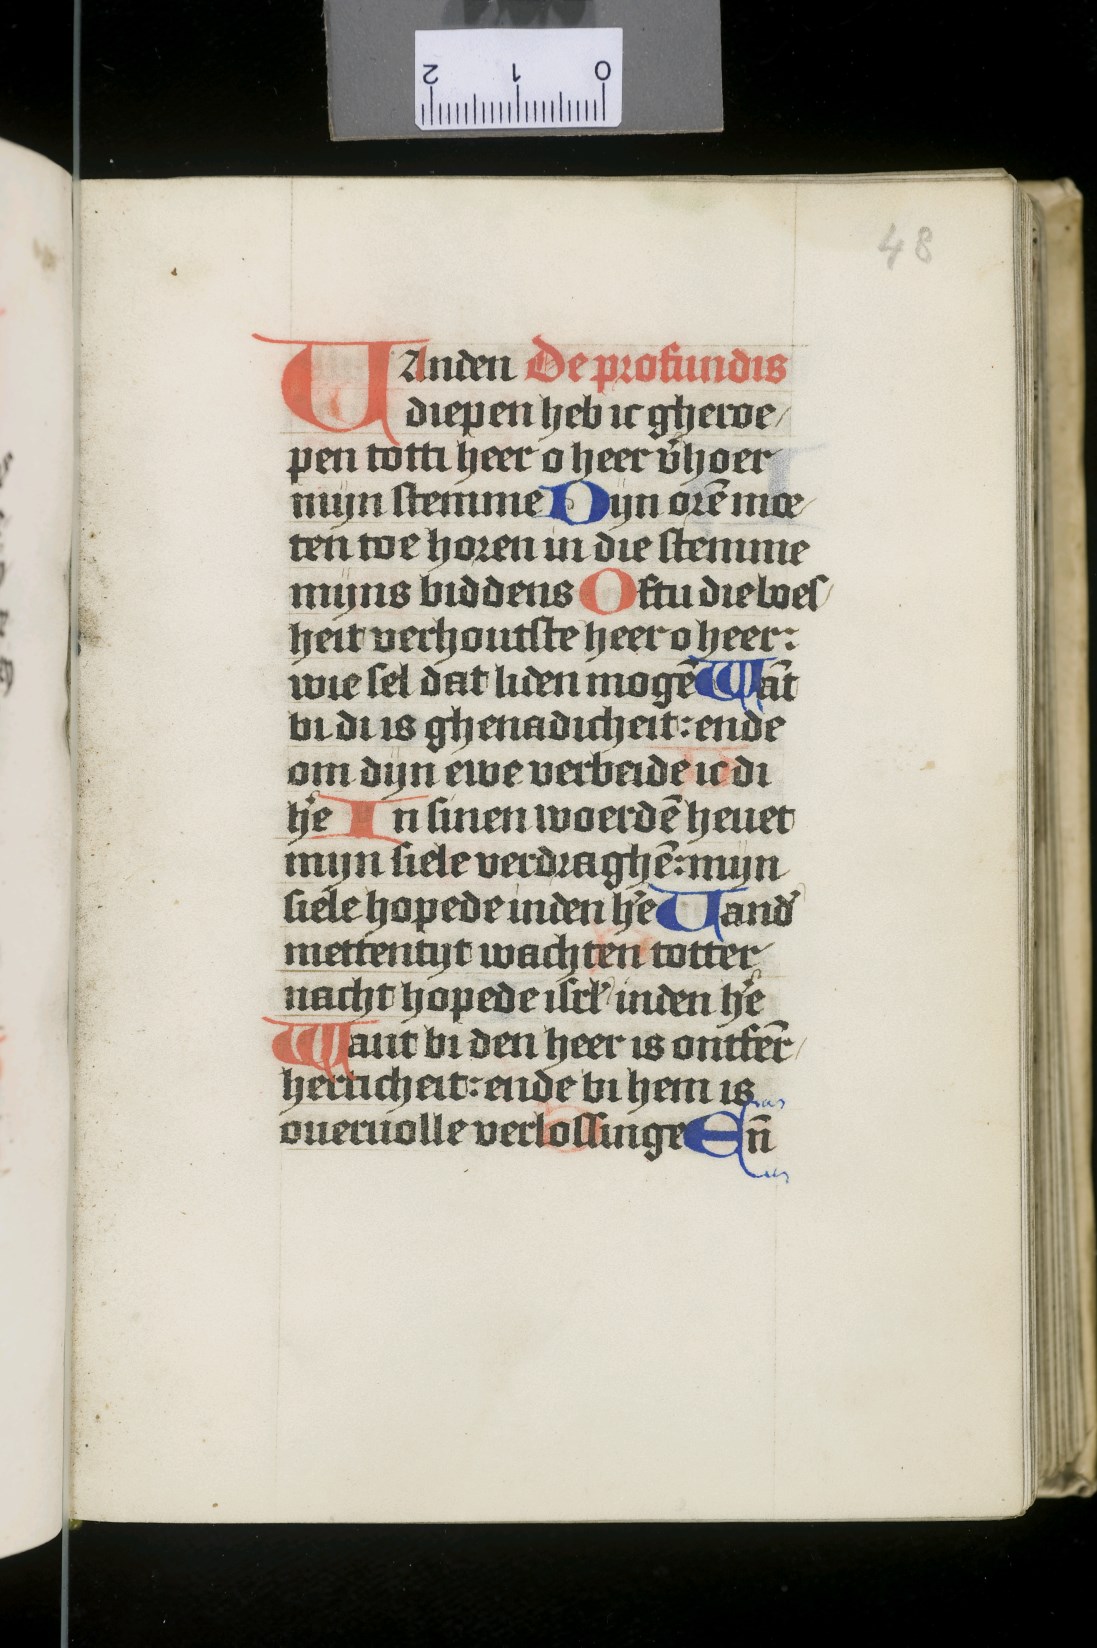 2 1 0
48
VAnden De profundis
diepen heb ic gheroe/
pen totti heer o heer v̄hoer
mijn stemme Dijn orē moe/
ten toe horen in die stemme
mijns biddens Oftu die boes/
heit verhoutste heer o heer:
wie sel dat liden mogē Wāt
bi di is ghenadicheit: ende
om dijn ewe verbeide ic di
h̄e In sinen woerdē heuet
mijn siele verdraghē: mijn
siele hopede inden h̄e Vand̄
mettentijt wachten totter
nacht hopede isrl̄ inden h̄e
Want bi den heer is ontfer̄/
herticheit: ende bi hem is
oueruolle verlossinge En̄